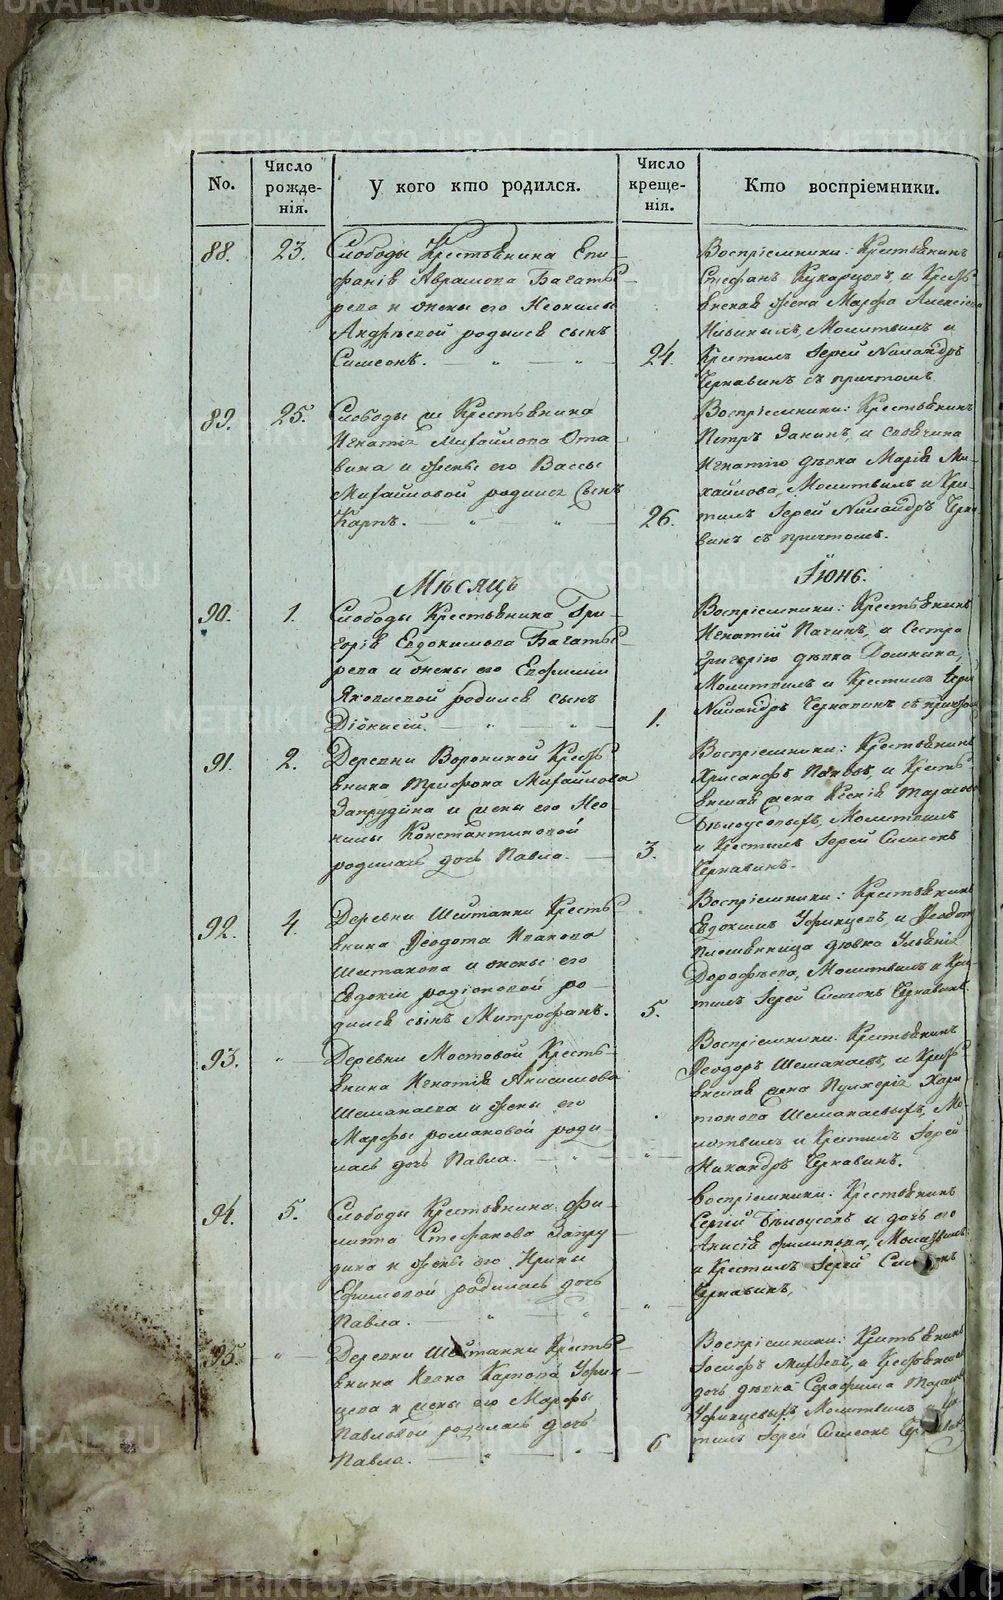 No.
Число рожде-
нія.
У кого кто родился.
Число креще-
нія.
Кто воспріемники.
88.
23.
Слободы Крестьянина Епи-
фанія Аврамова Багаты-
рева и жены его Неонилы
Андреевой родился сынъ
Симеонъ.
24.
Воспріемники: Крестьянинъ
Стефанъ и Кресть-
янская жена Марфа Алексіева
Молитвилъ и
Крестилъ Іерей Никандръ
Чернавинъ съ причтомъ.
89.
25.
Слободы Крестьянина
Игнатія Михайлова
и жены его Вассы
Михайловой родился сынъ
Карпъ.
26.
Воспріемники: Крестьянинъ
Петръ Занинъ, и
Игнатію дѣвка Марія Ми-
хайлова, Молитвилъ и Кре-
тилъ Іерей Никандръ Черна-
винъ съ причтомъ.
Мѣсяцъ
Іюнь.
90.
1.
Слободы Крестьянина Гри-
горія Евдокимова Багаты-
рева и жены его Евфиміи
Яковлевой родился сынъ
Діонисій.
1.
Воспріемники: Крестьянинъ
Игнатій и Сестра
Григорію дѣвка Домника,
Молитвилъ и Крестилъ Іерей
Никандръ Чернавинъ съ причтомъ
91.
2.
Деревни Ворониной Кресть-
янина Трифона Михайлова
Запрудина и жены его Нео-
нилы Константиновой
родилась дочь Павла.
3.
Воспріемники: Крестьянинъ
Хрисанфъ Поповъ, и Кресть-
янская жена Ксенія Тарасова
Бѣлоусовыхъ, Молитвилъ
и Крестилъ Іерей Симеонъ
Чернавинъ.
92.
4.
Деревни Шайтанки Кресть-
янина Ѳеодота Иванова
и жены его
Евдокіи Родіоновой ро-
дился сынъ Митрофанъ.
5.
Воспріемники: Крестьянинъ
Евдокимъ Уфинцевъ, и Ѳеодоту
племянница дѣвка Ульянія
Дорофѣева, Молитвилъ и Крес-
тилъ Іерей Симеонъ Чернавинъ
93.
Деревни Мостовой Кресть-
янина Игнатія Анисимова
Шеманаева и жены его
Марфы Романовой роди-
лась дочь Павла.
Воспріемники: Крестьянинъ
Ѳеодоръ Шеманаевъ, и Кресть-
янская жена Пулхерія Хари-
тонова Шеманаевыхъ, Мо-
литвилъ и Крестилъ Іерей
Никандръ Чернавинъ.
94.
5.
Слободы Крестьянина Фи-
липпа Стефанова Запру-
дина и жены его Ирины
Ефимовой родилась дочь
Павла.
Воспріемники: Крестьянинъ
Сергій Бѣлоусовъ и дочь его
Анисія Молитвилъ
и Крестилъ Іерей Симеонъ
Чернавинъ,
95.
Деревни Шайтанки Кресть-
янина Ивана Карпова Уфин-
цева и жены его Марфы
Павловой родилась дочь
Павла.
6
Воспріемники: Крестьянинъ
Іосифъ и Крестьянская
дочь дѣвка Серафима
Уфинцевыхъ Молитвилъ и Крес-
тилъ Іерей Симеонъ Чернавинъ
METRIKI.GASO-URAL.RU